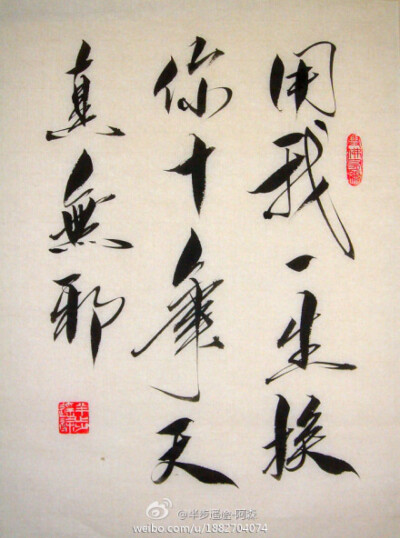 用我一生换
你十年天
真無邪
@半步逍遥-阿淼
weibo.com/u/1882704074